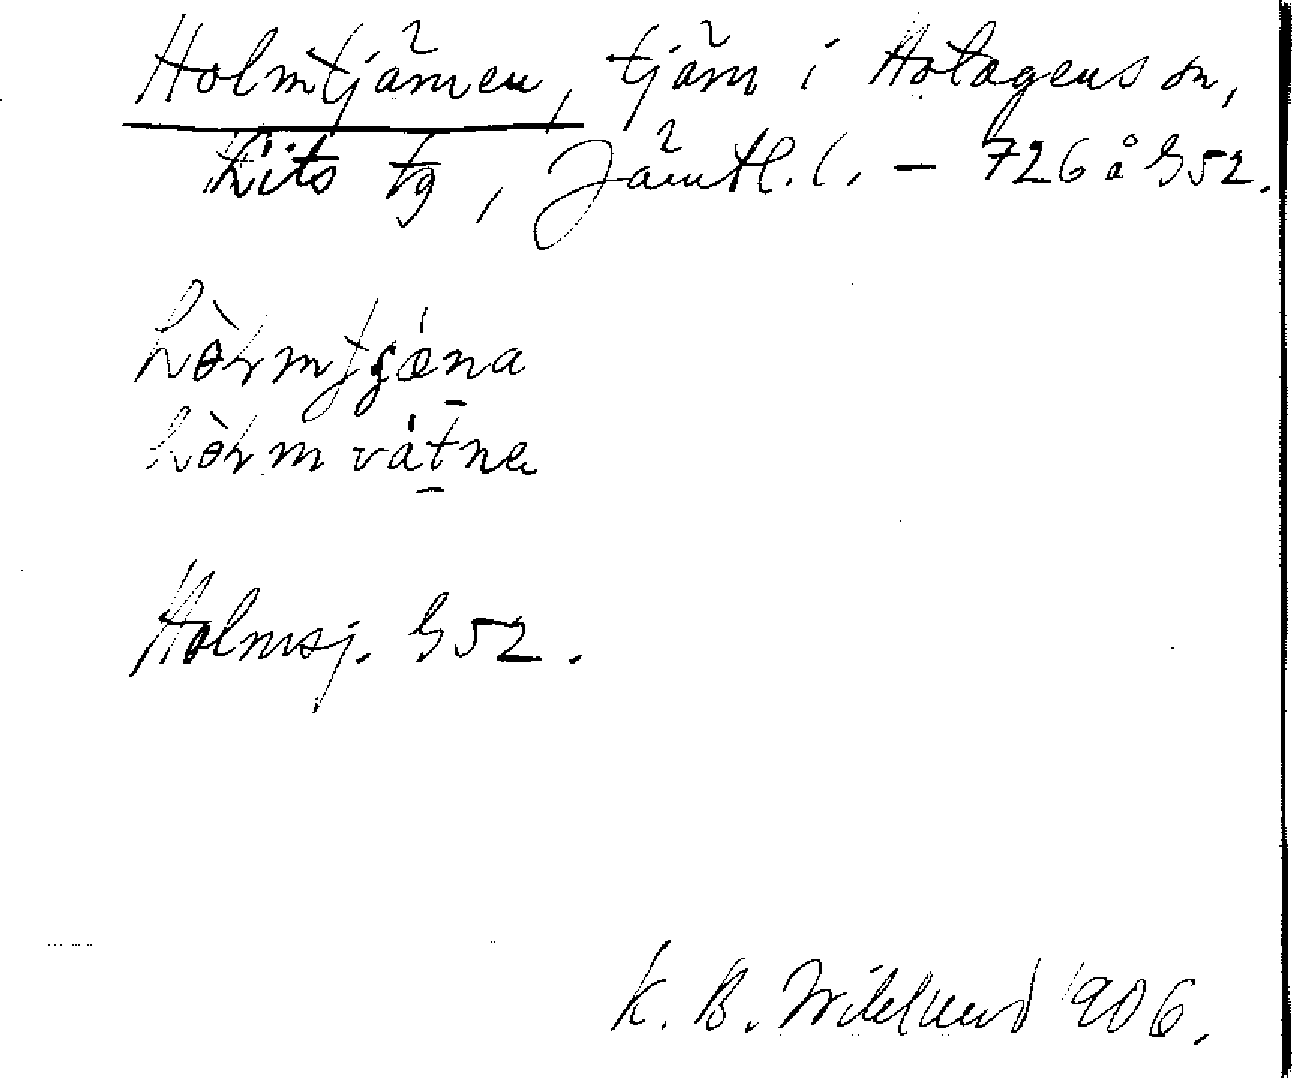 Holmtjärnen, tjärn i Hotagens sn,
Lits tg, Jämtl. l. – 726 å G52.
hòɫmtʂǽna
hòɫm vátna
Holmsj. G52.
K. B. Wiklund 1906.